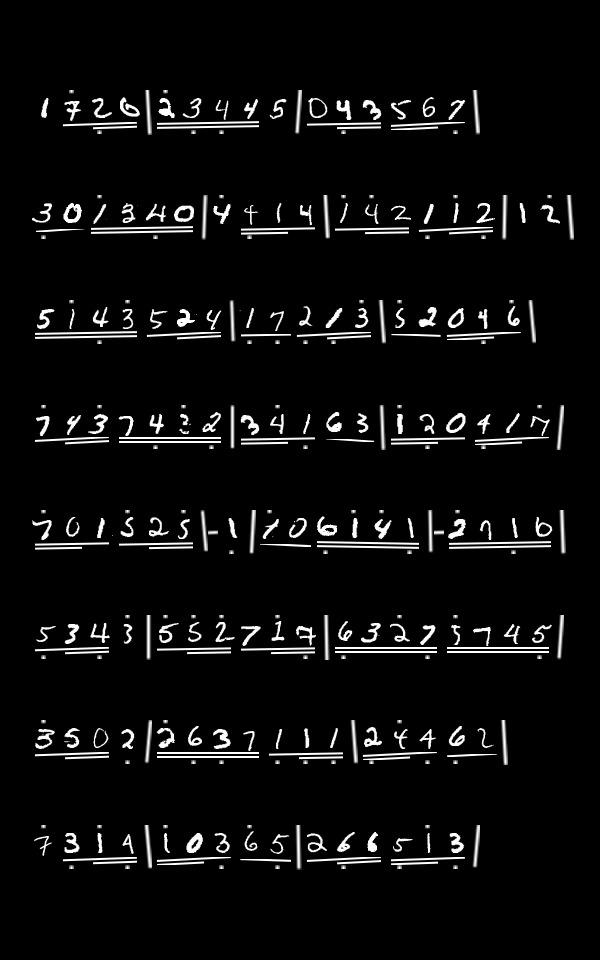 1 7 2 6 | 2 3 4 4 5 | 0 4 3 5 6 7 |
3 0 1 3 4 0 | 4 4 1 4 | 1 4 2 1 1 2 | 1 2 |
5 1 4 3 5 2 4 | 1 7 2 1 3 | 5 2 0 4 6 |
7 4 3 7 4 3 2 | 3 4 1 6 3 | 1 2 0 4 1 7 |
7 0 1 5 2 5 | - 1 | 7 0 6 1 4 1 | - 2 7 1 6 |
5 3 4 3 | 5 5 2 7 1 7 | 6 3 2 7 5 7 4 5 |
3 5 0 2 | 2 6 3 7 1 1 1 | 2 4 4 6 2 |
7 3 1 4 | 1 0 3 6 5 | 2 6 6 5 1 3 |